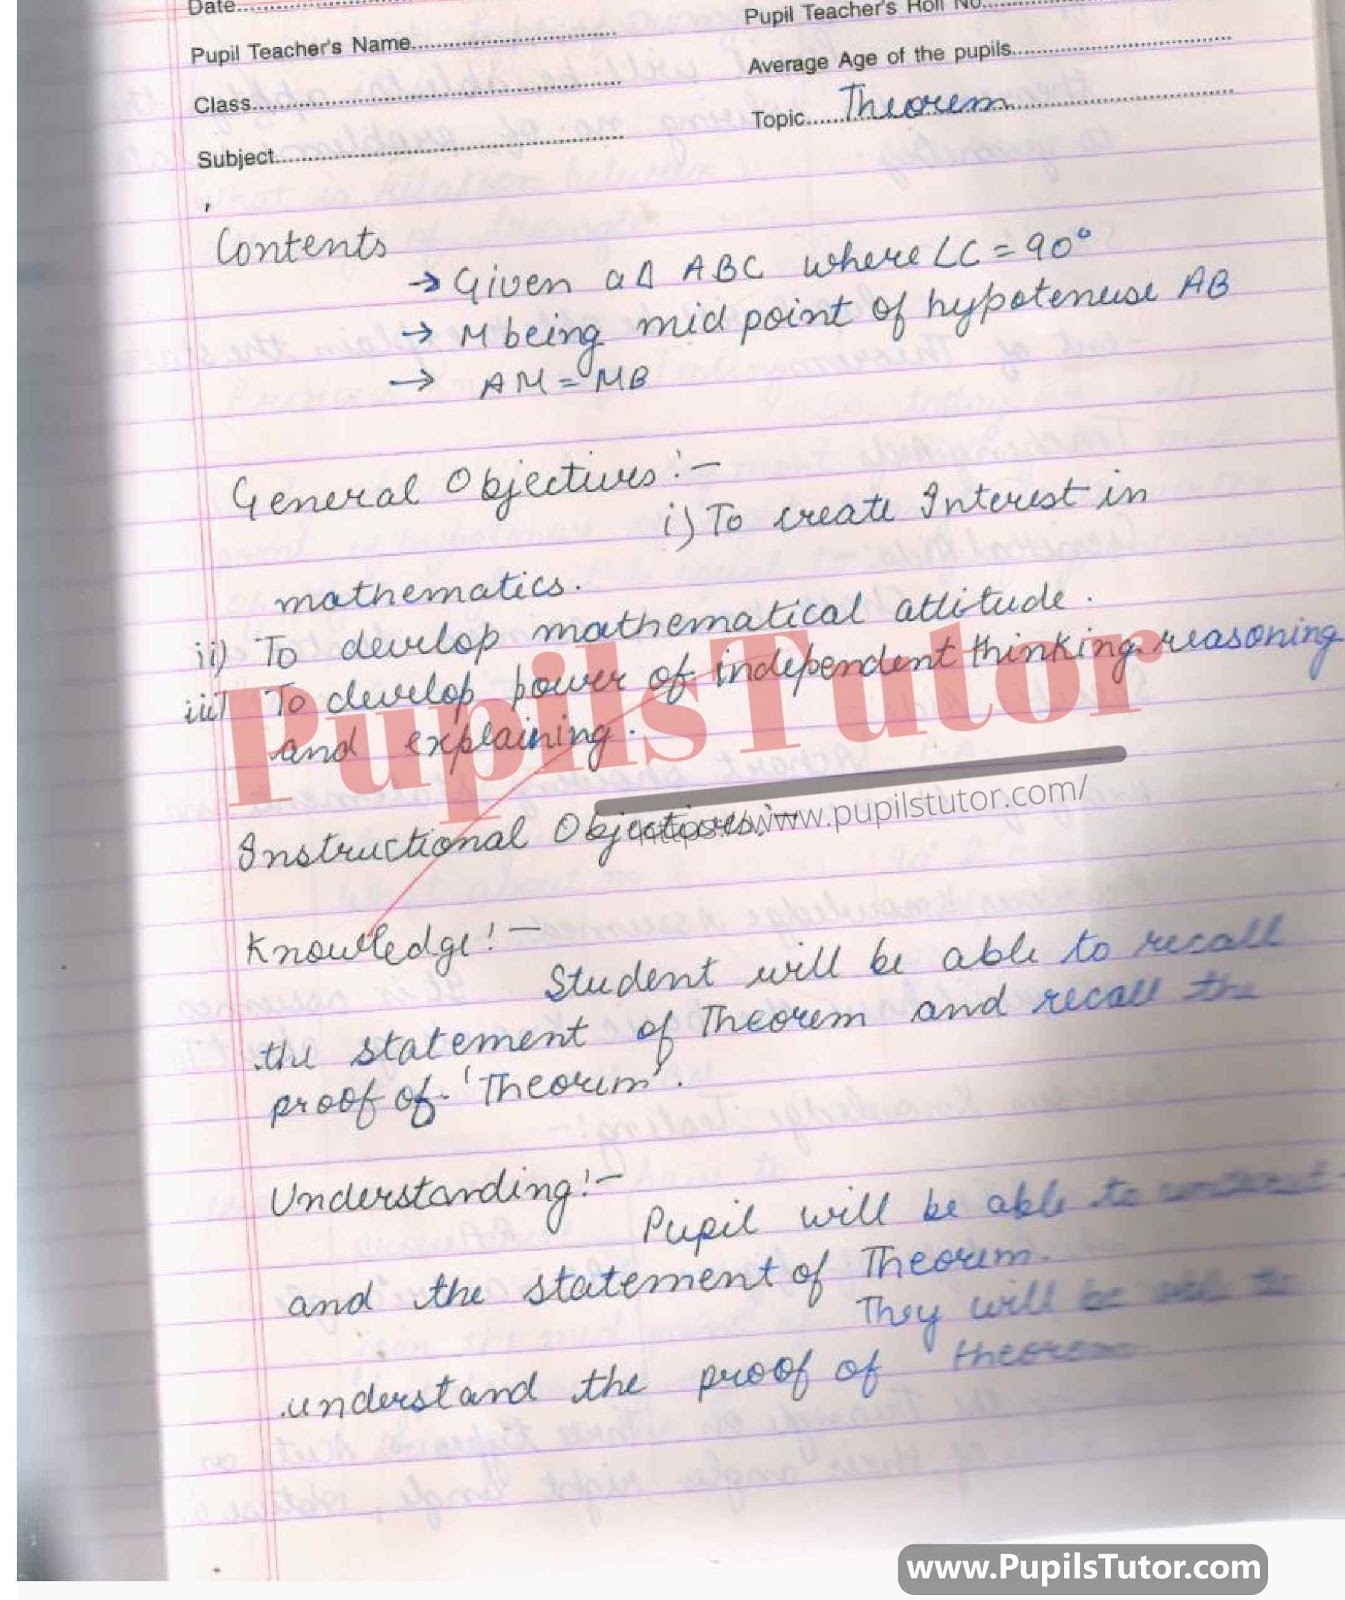 Date
Pupil Teacher's Roll No.
Pupil Teacher's Name
Average Age of the pupils
Class
Topic Theorem
Subject
Contents
→ Given a Δ ABC where ∠C = 90°
→ M being mid point of hypotenuse AB
→ AM = MB
General Objectives :-
i) To create Interest in
mathematics.
ii) To develop mathematical attitude.
iii) To develop power of independent thinking reasoning
and explaining.
PupilsTutor
Instructional Objectives :-
https://www.pupilstutor.com/
Knowledge :-
Student will be able to recall
the statement of Theorem and recall the
proof of 'Theorem'.
Understanding :-
Pupil will be able to underst-
and the statement of Theorem.
They will be able to
understand the proof of theorem
www.PupilsTutor.com